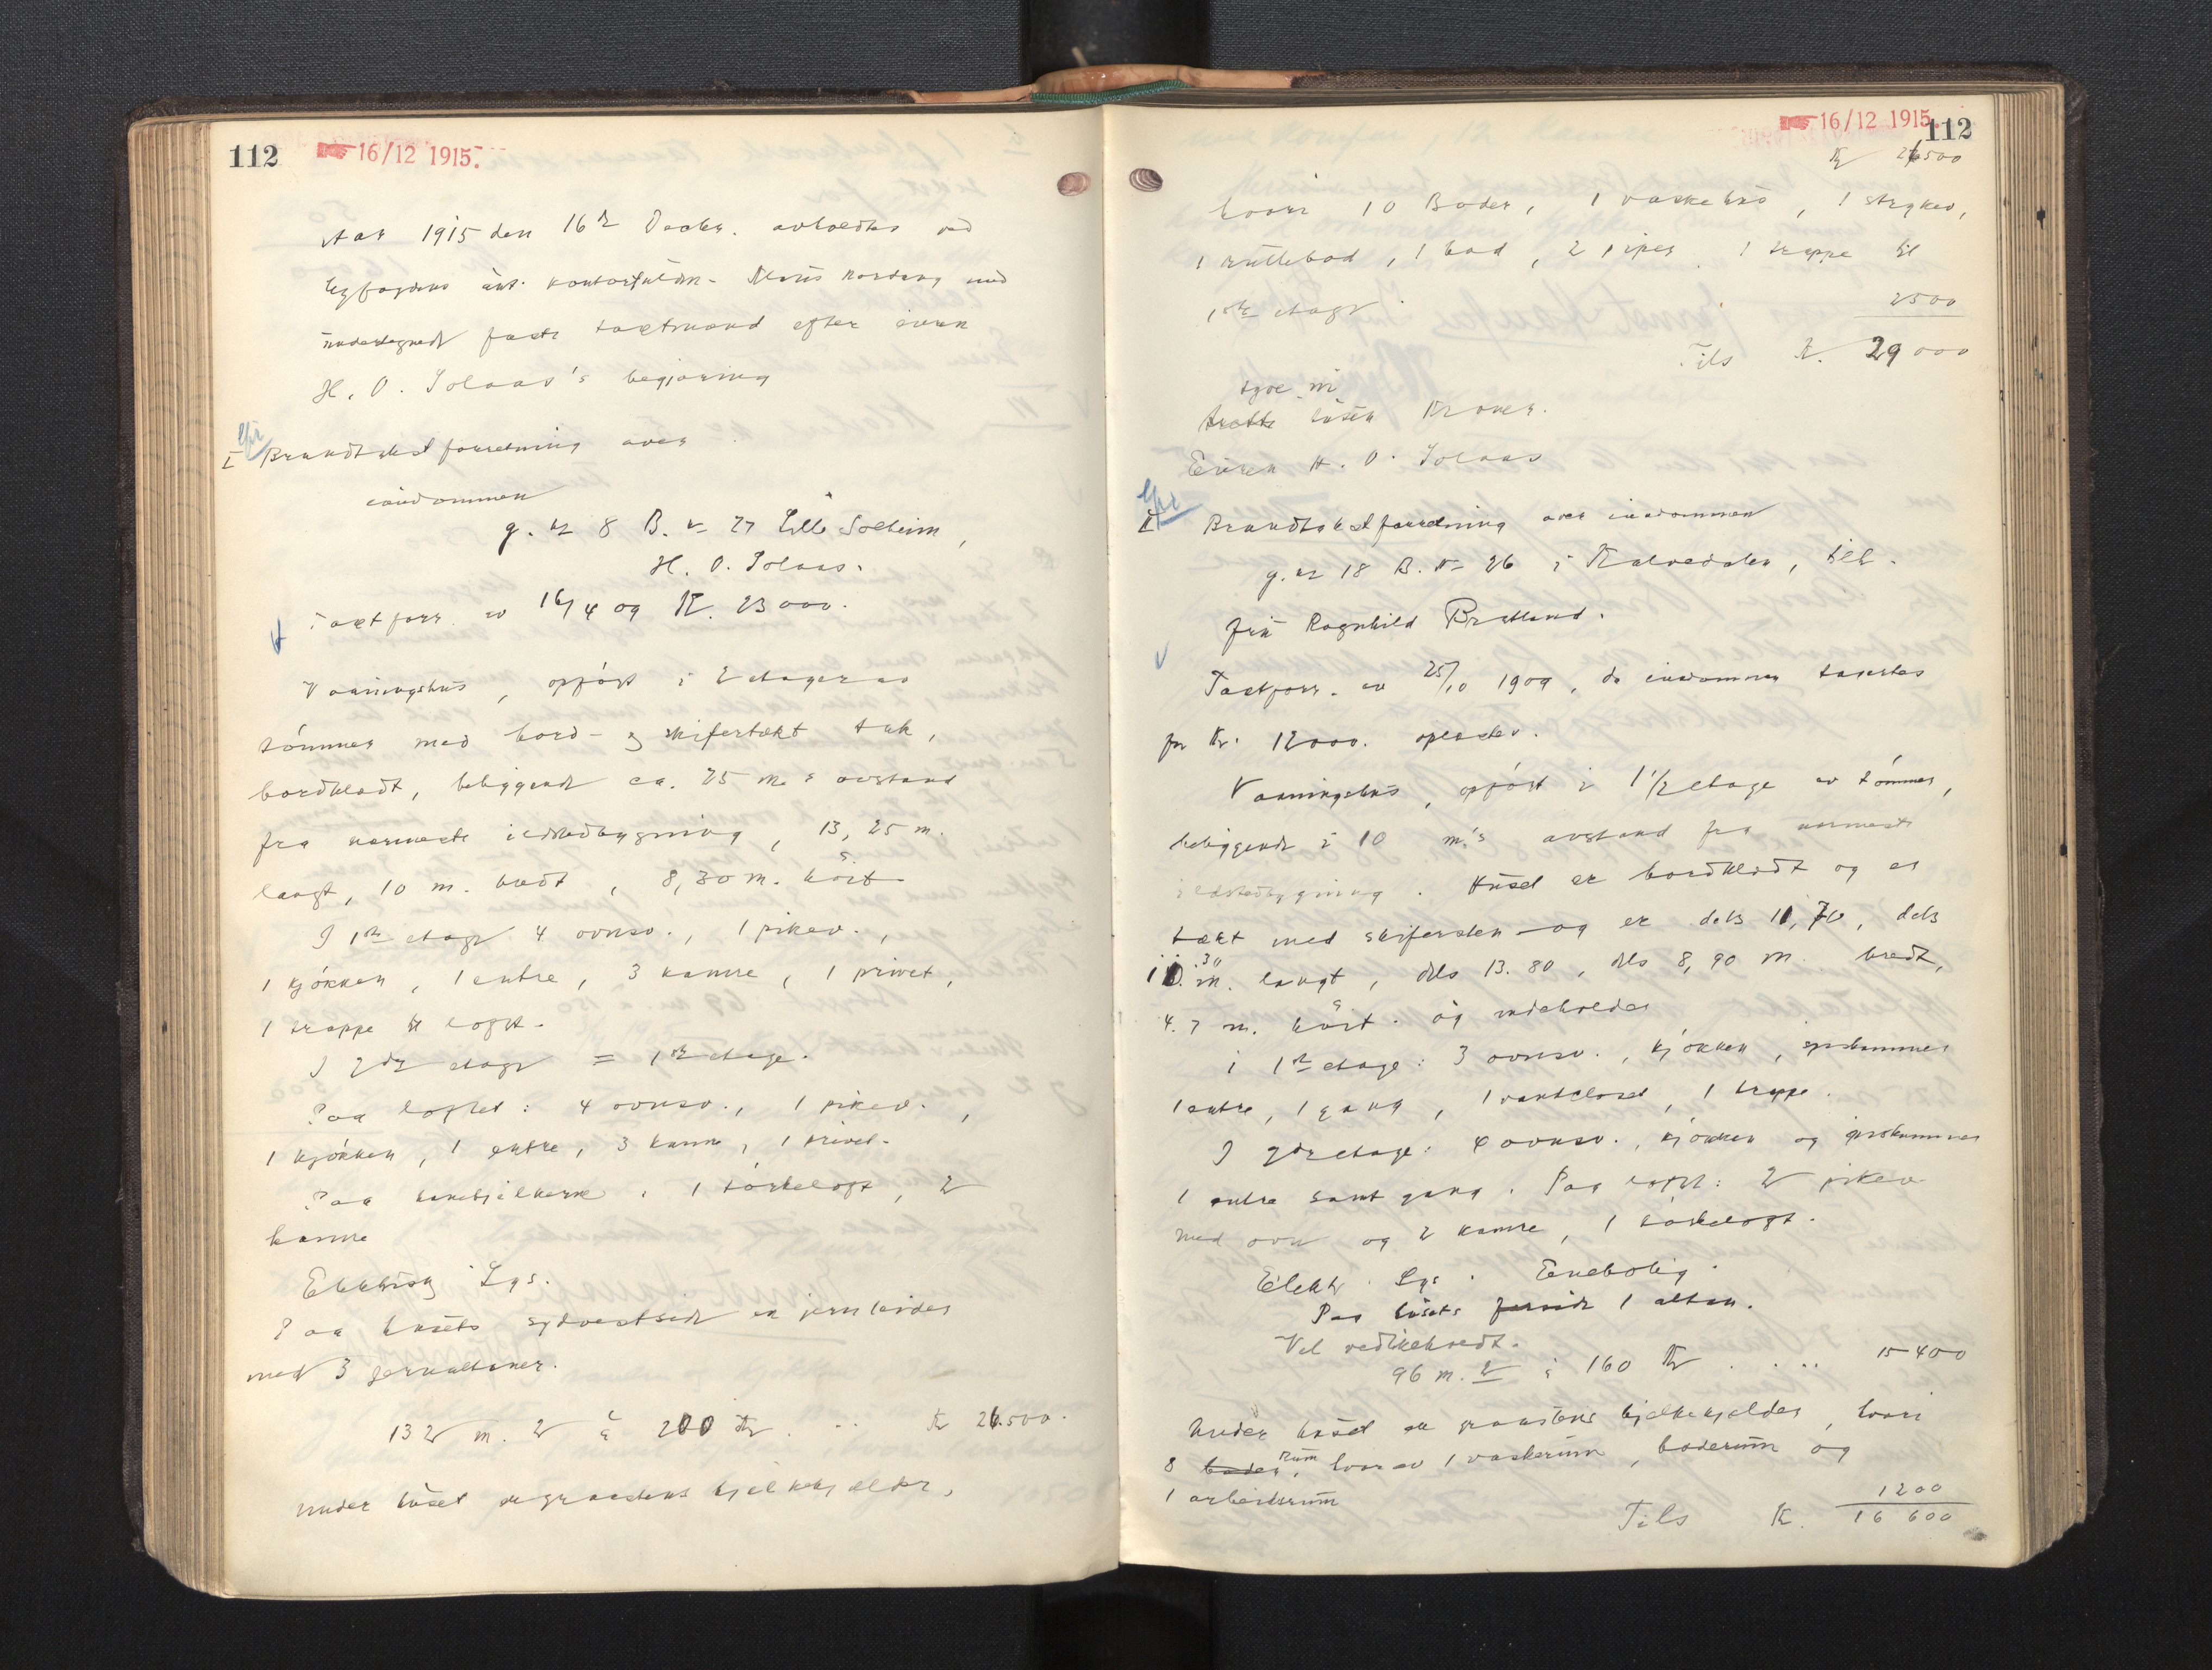 112 16/12 1915.
Aar 1915 den 16de Decbr. avholdtes ved
byfogdens aut. kontorfuldm. Klaus Nordang med
undertegnede faste taxtmænd efter eieren
H. O. Solaas's begjæring
I Brandtakstforretning over
eiendommen
g. nr 8 B. nr 27 Lille Solheim,
H. O. Solaas.
Taxtforr. av 16/4 09 Kr. 23000.
Vaaningshus, opført i 2 etager av
tømmer med bord- og skifertækt tak,
bordklædt, beliggende ca. 25 m. i avstand
fra nærmeste ildstedbygning, 13,25 m.
langt, 10 m. bredt, 8,30 m. høit
I 1ste etage 4 ovnsv., 1 pikev.,
1 kjøkken, 1 entre, 3 kamre, 1 privet,
1 trappe til loft.
I 2den etage = 1ste etage.
Paa loftet: 4 ovnsv., 1 pikev.,
1 kjøkken, 1 entre, 3 kamre, 1 privet.
Paa hanebjelkerne: 1 tørkeloft, 2
kamre
Elektrisk Lys.
Paa husets sydvestside en jernleider
med 3 jernaltaner.
132 m. 2 à 200 Kr. .. Kr 26.500.
Under huset en graastens bjelkekjelder,
16/12 1915. 112
Kr 26500
hvori 10 Boder, 1 vaskehus, 1 strykev,
1 rullebod, 1 bad, 2 piper, 1 trappe til
1ste etage. 2500
Tils Kr. 29000
tyve ni
tredve tusen Kroner.
Eieren H. O. Solaas
II Brandtakstforretning over eiendommen
g. nr 18 B. nr 26 i Kalvedalen, tilh.
fru Ragnhild Bratland.
Taxtforr. av 25/10 1909, da eiendommen taxertes
for Kr. 12000. oplæstes.
Vaaningshus, opført i 1 1/2 etage av tømmer,
beliggende i 10 m.'s avstand fra nærmeste
ildstedbygning. Huset er bordklædt og er
tækt med skifersten og er dels 11,70, dels
10.30 m. langt, dels 13.80, dels 8,90 m. bredt,
4.7 m. høit. og indeholder
i 1ste etage: 3 ovnsv., kjøkken, spiskammer
1 entre, 1 gang, 1 vandcloset, 1 trappe.
I 2den etage: 4 ovnsv., kjøkken og spiskammer
1 entre samt gang. Paa loftet: 2 pikev
med ovn og 2 kamre, 1 tørkeloft.
Elektr. Lys. Enebolig.
Paa husets forside 1 altan.
Vel vedlikeholdt.
96 m. 2 à 160 Kr . . .. 15400
Under huset en graastens bjelkekjelder, hvori
8 boder, rum hvorav 1 vaskerum, baderum og
1 arbeidsrum 1200
Tils Kr. 16600